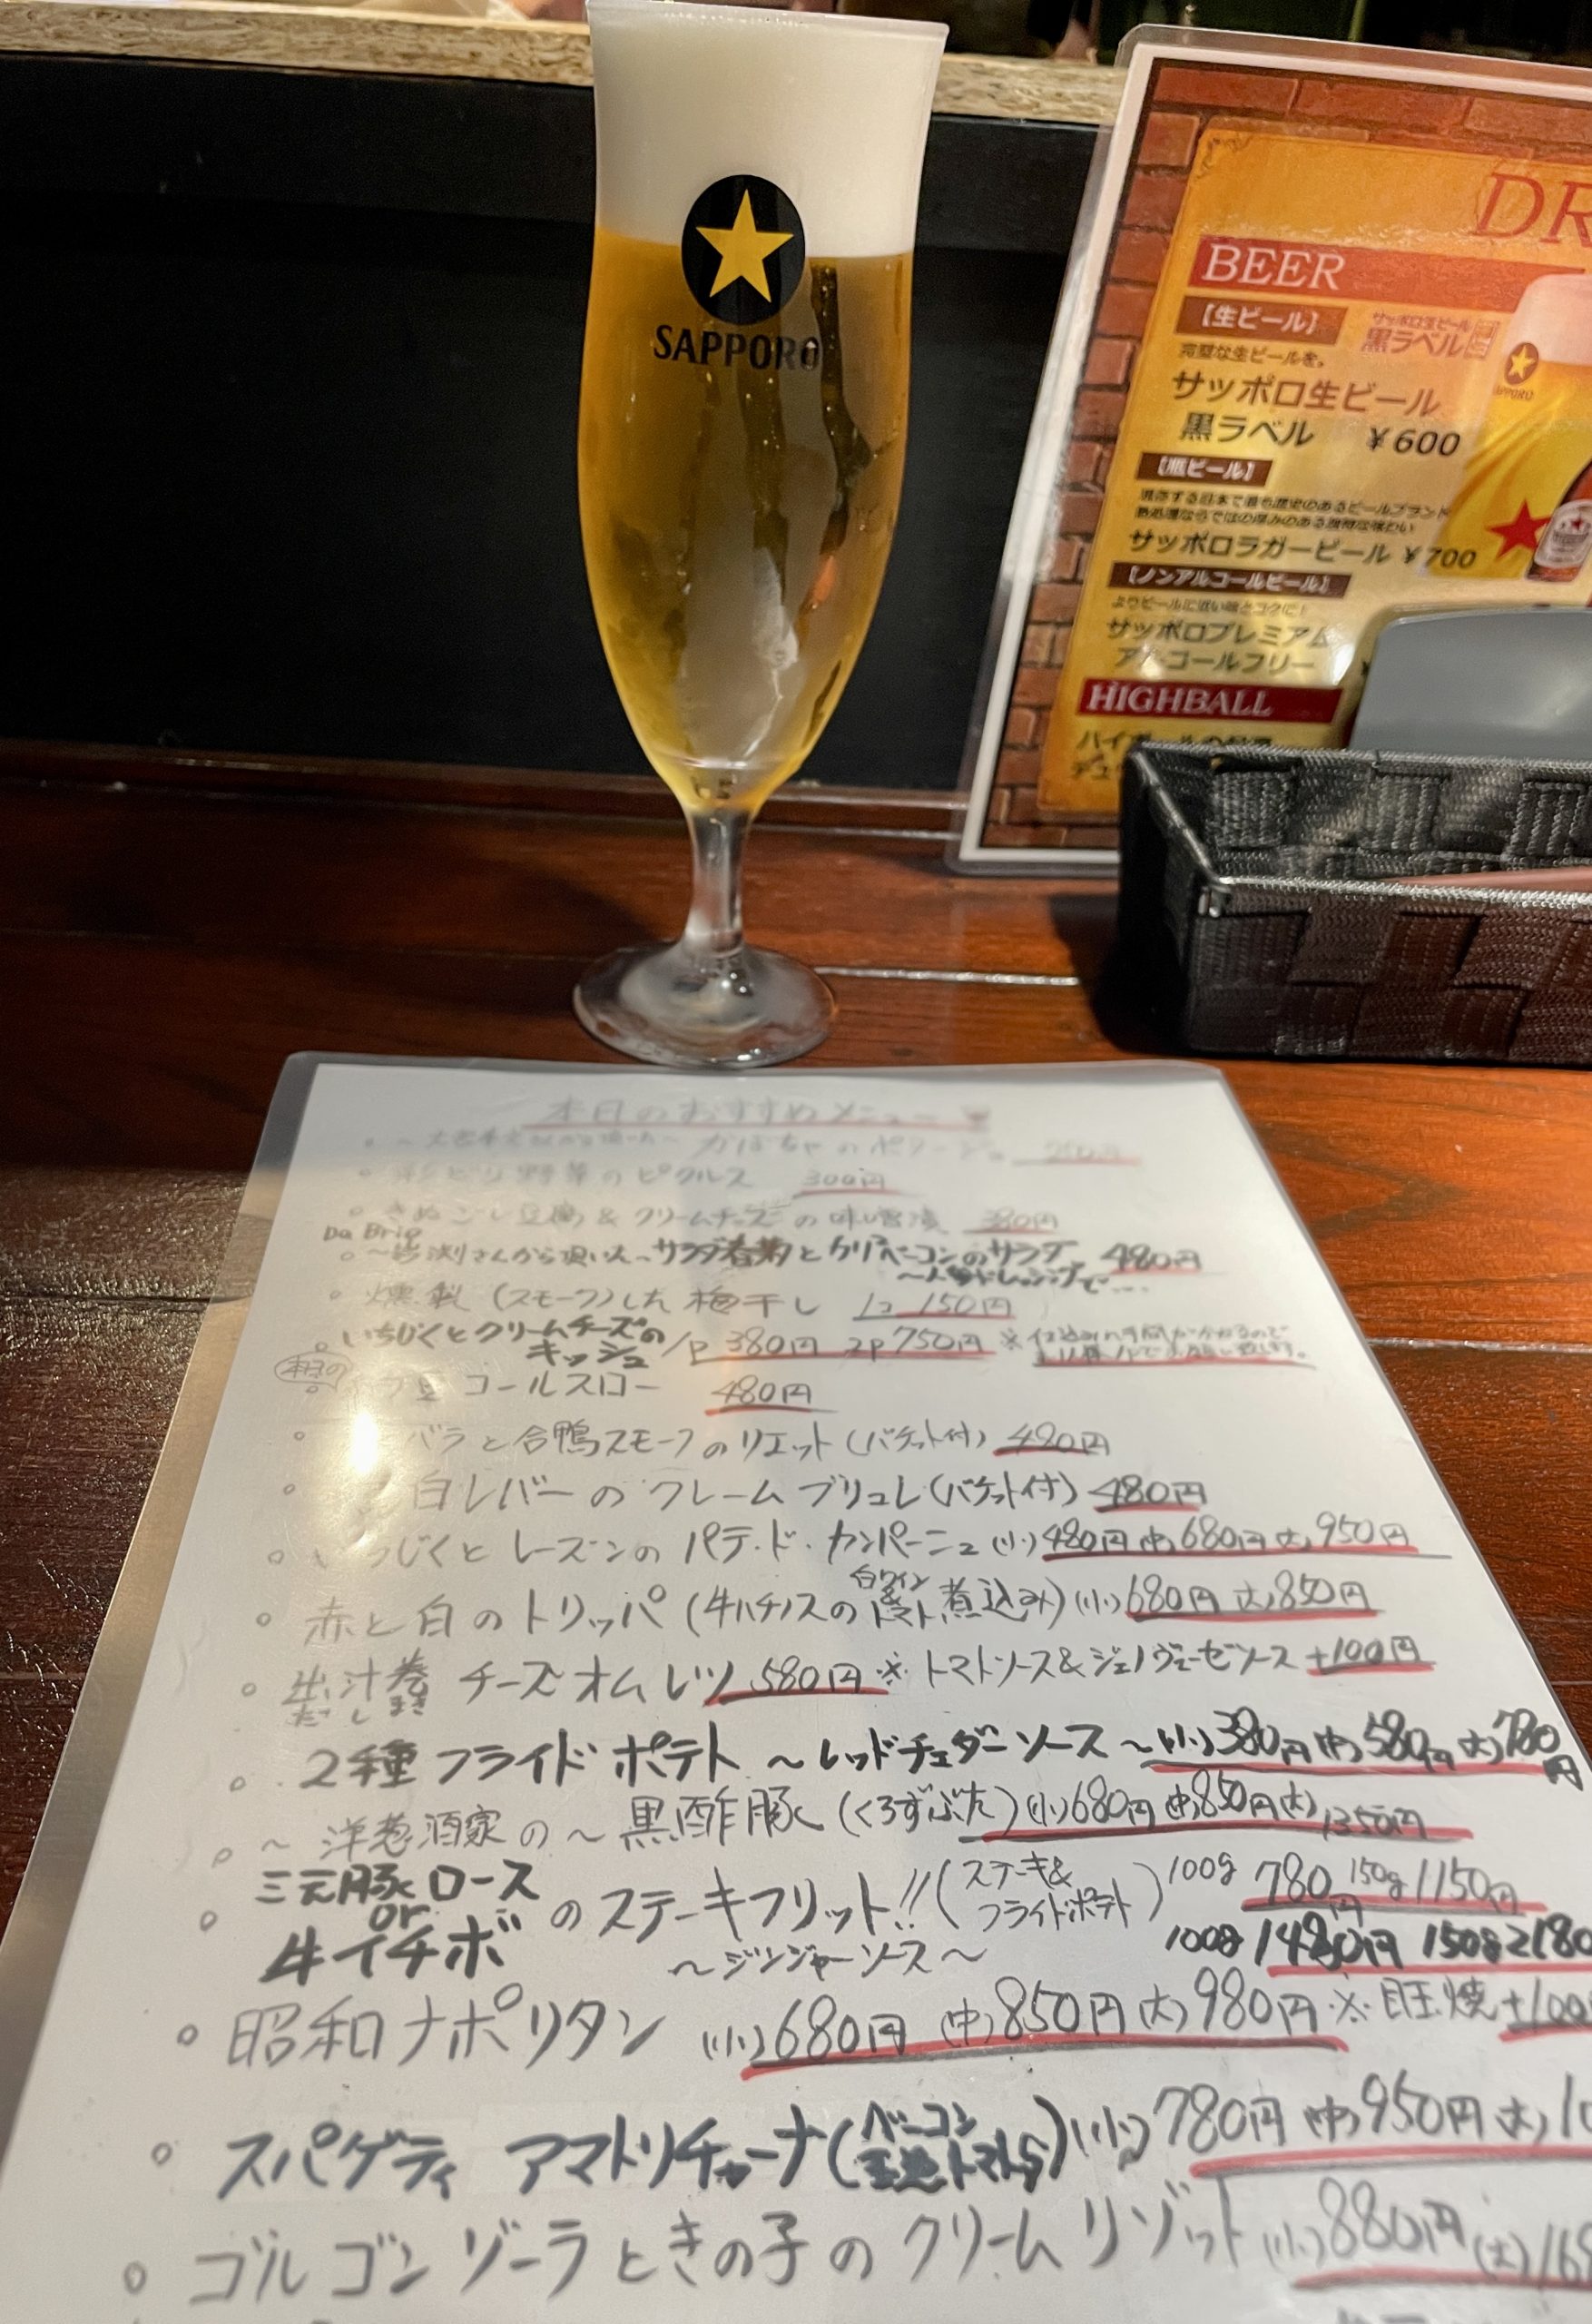 SAPPORO
DR
BEER
【生ビール】
サッポロ生ビール
黒ラベル
完璧な生ビールを。
サッポロ生ビール
黒ラベル ¥600
【瓶ビール】
現存する日本で最も歴史のあるビールブランド
熱処理ならではの厚みのある独特な味わい
サッポロラガービール ¥700
【ノンアルコールビール】
サッポロプレミアム
アルコールフリー
HIGHBALL
SAPPORO
本日のおすすめメニュー
かぼちゃのポタージュ
野菜のピクルス 300円
きぬごし豆腐&クリームチーズの味噌漬 380円
Da Brio
さんから頂いた~サラダ春菊とカリカリベーコンのサラダ 480円
燻製(スモーク)した梅干し 1コ 150円
いちじくとクリームチーズの
キッシュ 1P 380円 2P 750円
コールスロー 480円
バラと合鴨スモークのリエット(バゲット付) 480円
白レバーのクレームブリュレ(バゲット付) 480円
じくとレーズンのパテ・ド・カンパーニュ(小)480円(中)680円(大)950円
赤と白のトリッパ(牛ハチノスの白ワイン&トマト煮込み)(小)680円(大)850円
出汁巻チーズオムレツ 580円 ※トマトソース&ジェノヴェーゼソース+100円
だしまき
2種フライドポテト ~レッドチェダーソース~(小)380円(中)580円(大)780円
~洋葱酒家の~黒酢豚(くろずぶた)(小)680円(中)850円(大)1350円
三元豚ロース
or
牛イチボ
のステーキフリット!!(ステーキ&フライドポテト)100g 780円 150g 1150円
~ジンジャーソース~ 100g 1480円 150g 2180
昭和ナポリタン (小)680円(中)850円(大)980円 ※目玉焼+100
スパゲティ アマトリチャーナ(ベーコン 玉葱 トマト)(小)780円(中)950円(大)
ゴルゴンゾーラときの子のクリームリゾット(小)880円(大)